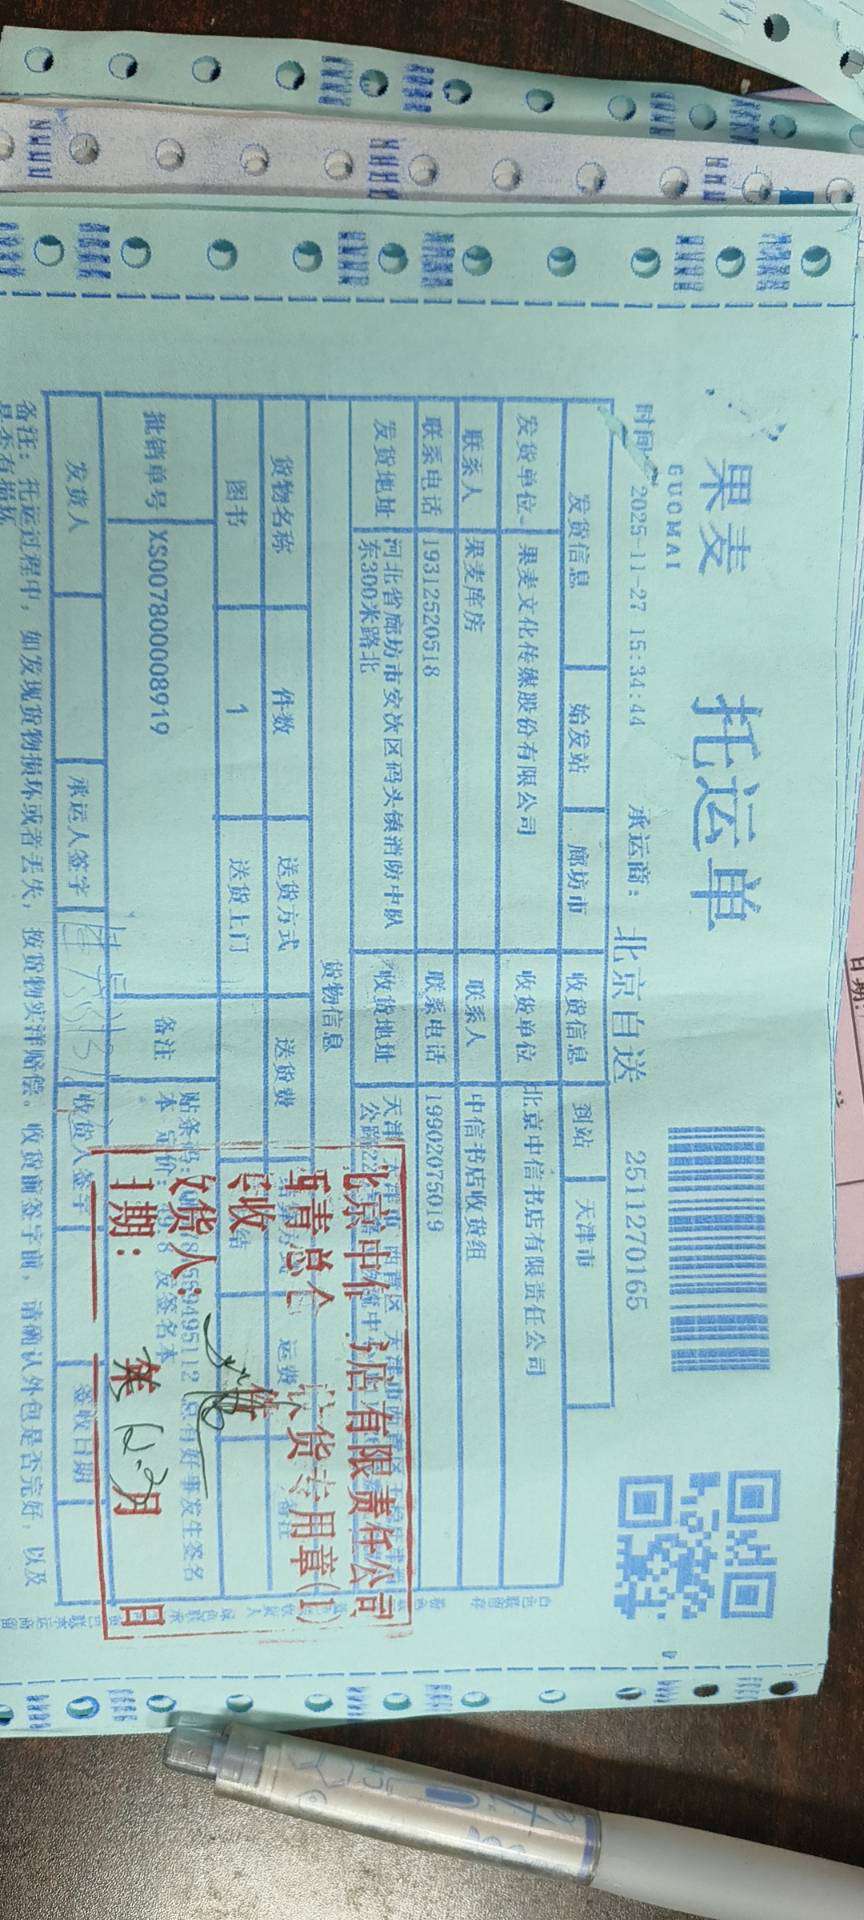 果麦 托运单
GUOMAI
时间 2025-11-27 15:34:44 承运商: 北京自送 2511270165
发货信息 始发站 廊坊市 收货信息 到站 天津市
发货单位 果麦文化传媒股份有限公司 收货单位 北京中信书店有限责任公司
联系人 果麦库房 联系人 中信书店收货组
联系电话 19312520518 联系电话 19902075019
发货地址 河北省廊坊市安次区码头镇消防中队 收货地址 天津
东300米路北 公路22
货物信息
货物名称 件数 送货方式 送货费 运费
图书 1 送货上门
批销单号 XS007800008919 备注 贴条码: 559495112 总有好事发生签名
本 定价: 及签名本
发货人 承运人签字 收货人签字 签收日期
备注: 托运过程中, 如发现货物损坏或者丢失, 按货物实洋赔偿。收货前签字前, 请确认外包是否完好, 以及
是否有损坏
北京中信书店有限责任公司
收货专用章(1)
收货人:
日期: 年 12.2 月 日
日期: